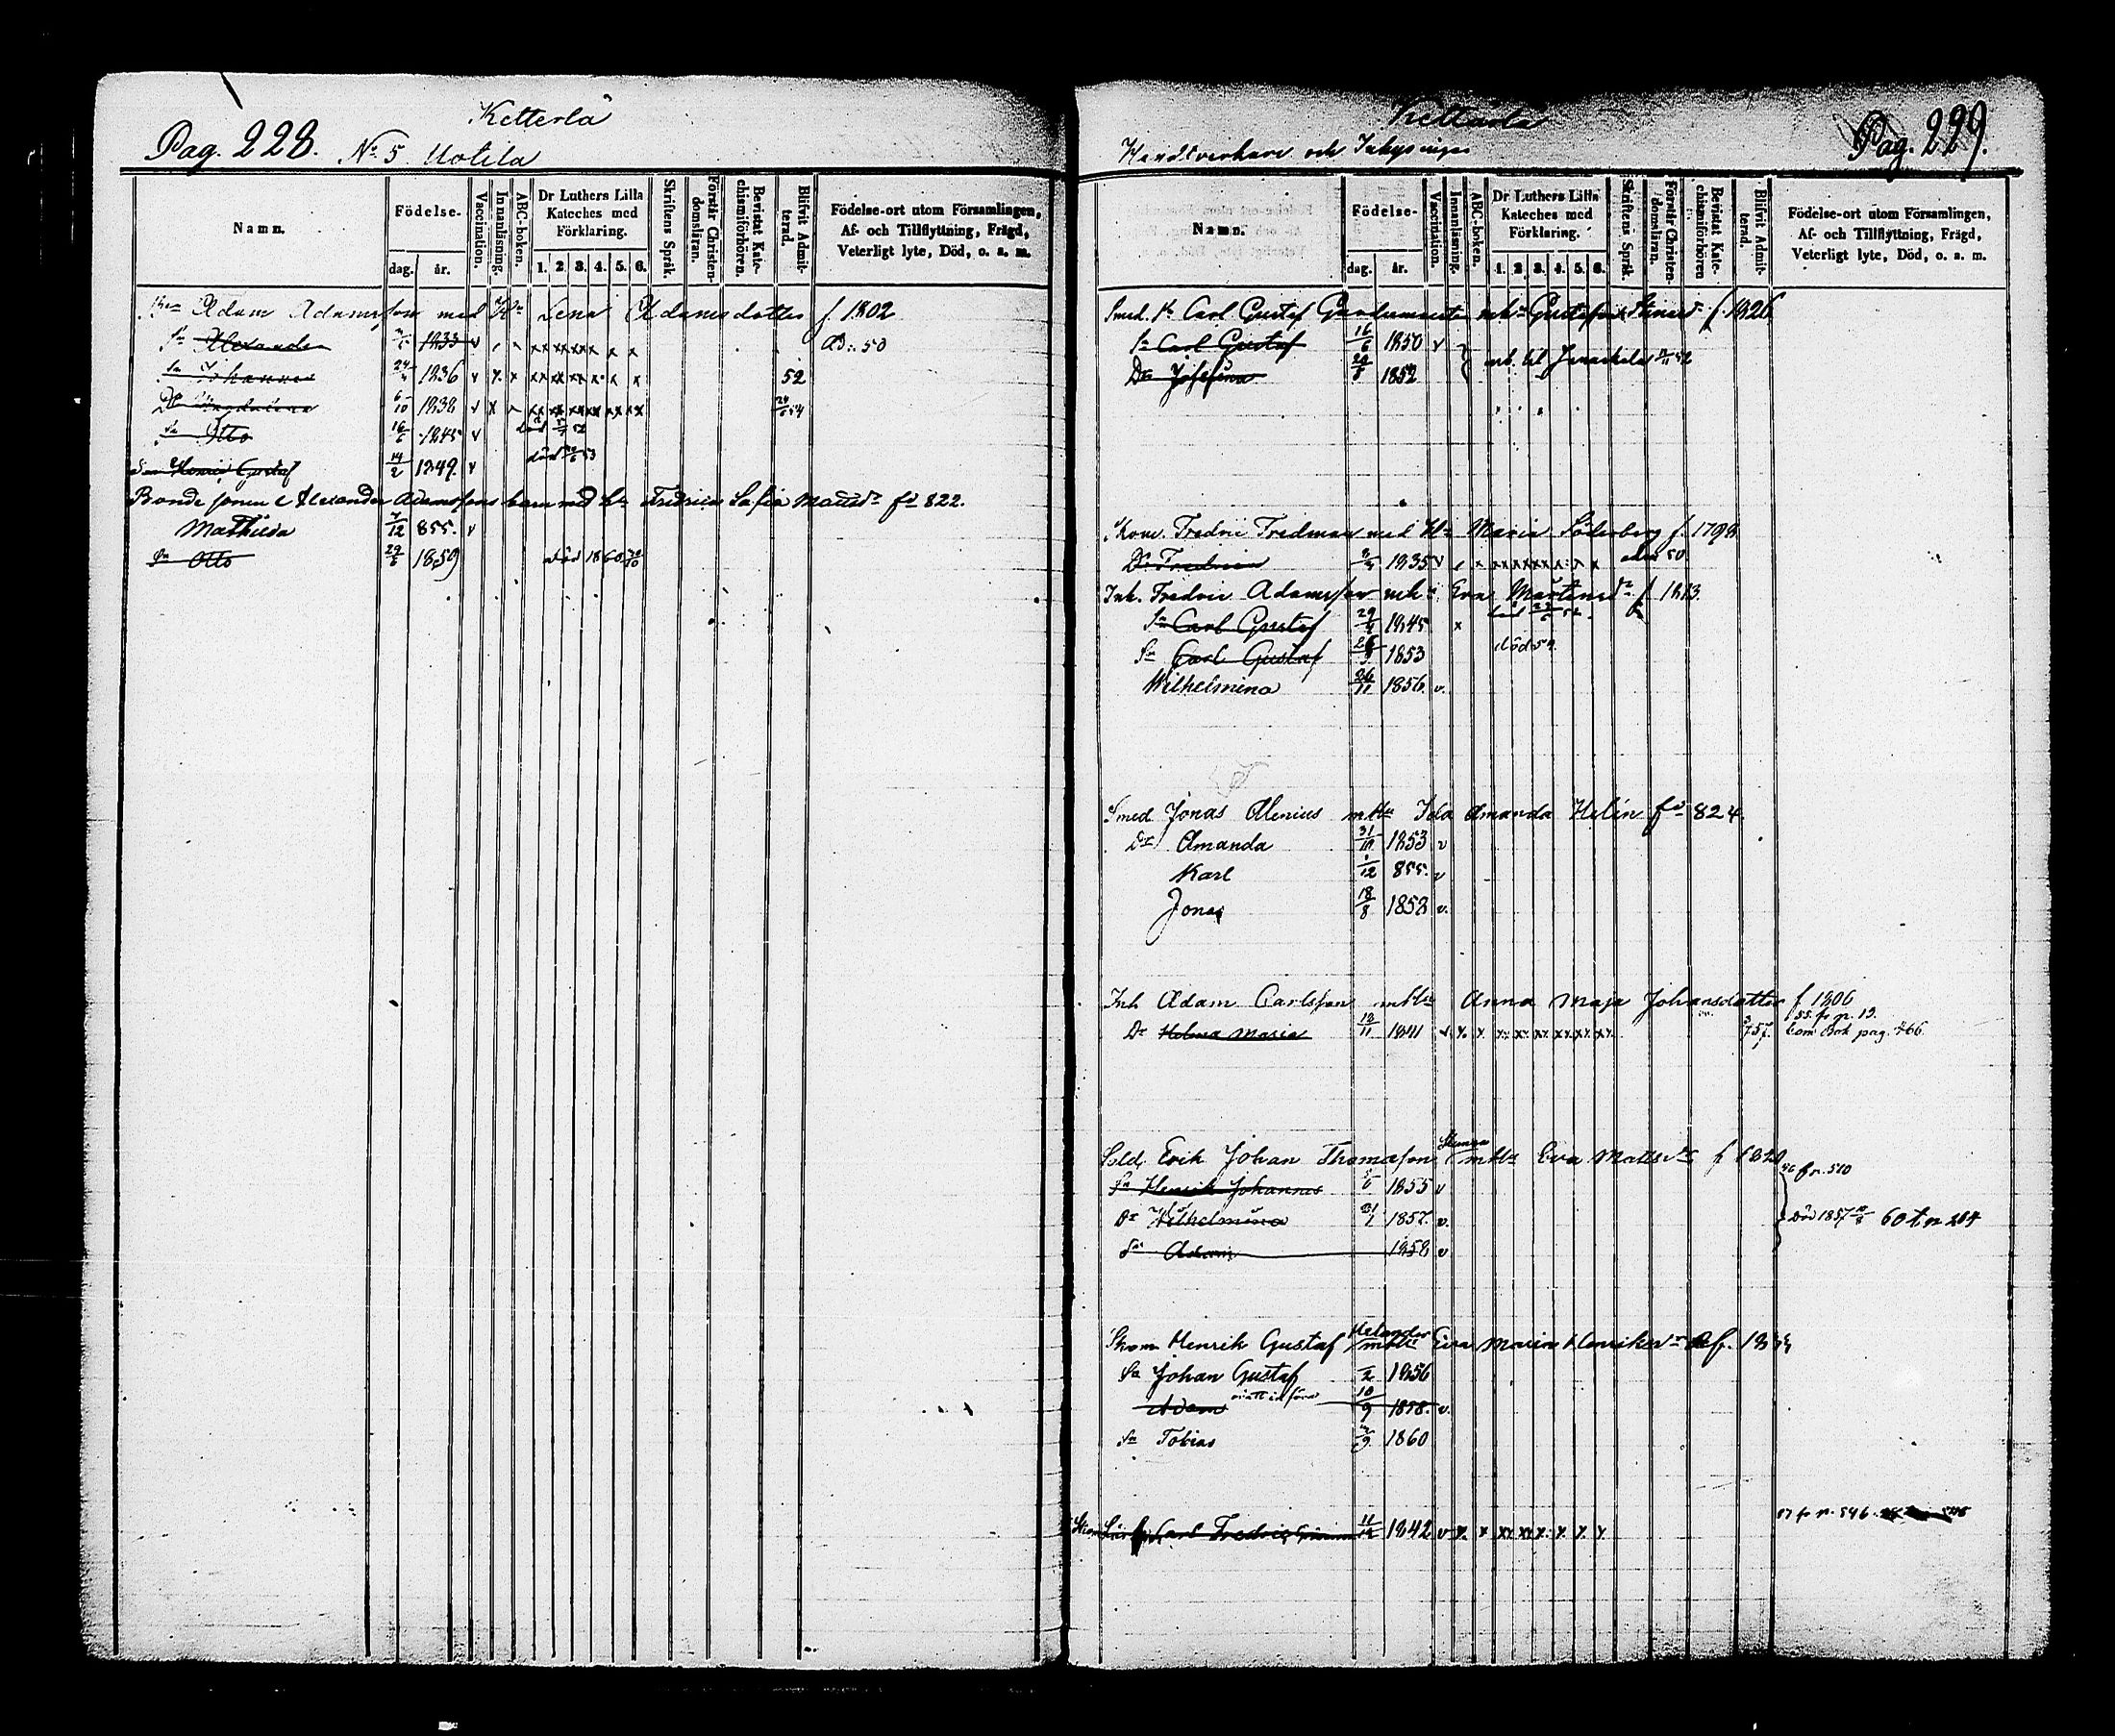 Ketterlä
Pag. 228.
No 5 Uotila
Namn.
Födelse-
dag. år.
Vaccination.
Innanläsning.
ABC-boken.
Dr Luthers Lilla
Kateches med
Förklaring.
1. 2. 3. 4. 5. 6.
Skriftens Språk.
Förstår Christen-
domsläran.
Bevistat Kate-
chismiförhören.
Blifvit Admit-
terad.
Födelse-ort utom Församlingen,
Af- och Tillflyttning, Frägd,
Veterligt lyte, Död, o. s. m.
Adam Adamsson med Hu Lena Adamsdotter f 1802
Sn Alexander 1833 v Ad: 50
Sn Johannes 24/4 1836 v x x xx xx xx x x x 52
Dr Magdalena 6/10 1838 v x xx xx xx xx xx xx
Sn Otto 16/6 1845 v död 52
Sn Henric Gustaf 14/2 1849. v död 53
Bonde sonen Alexander Adamssons barn med hu Fredrica Sofia Matsdr fd 822.
Mathilda 7/12 855. v
Sn Otto 29/5 1859 död 1860
Ketterlä
Handtverkare och Inhysingar
Pag. 229.
Namn.
Födelse-
dag. år.
Vaccination.
Innanläsning.
ABC-boken.
Dr Luthers Lilla
Kateches med
Förklaring.
1. 2. 3. 4. 5. 6.
Skriftens Språk.
Förstår Christen-
domsläran.
Bevistat Kate-
chismiförhören
Blifvit Admit-
terad.
Födelse-ort utom Församlingen,
Af- och Tillflyttning, Frägd,
Veterligt lyte, Död, o. s. m.
Smed. Carl Gustaf f. 1826
Sn Carl Gustaf 16/6 1850 v
Dr Josefina 24/8 1852 till Janackala 52
Skom. Fredric Fredman med Hu Maria Söderberg f. 1798
Dr Fredrica 1835 v x xx xx xx x x x adm 50.
Inh. Fredric Adamsson mhu Eva Mårtensdr f 1813.
Sn Carl Gustaf 29/4 1845 x död 52.
Sn Carl Gustaf 1853 död 54.
Wilhelmina 26/11 1856. v.
Smed Jonas Alenius mHu Ida Amanda Helin fd 824.
Dr Amanda 31/10 1853 v
Karl 1/12 855. v
Jonas 18/8 1858 v.
Inh Adam Carlsson mHu Anna Maja Johansdotter f 1806
55 fr p. 13.
Dr Helena Maria 13/11 1841 v x x xx xx xx xx xx xx 57. Com. Bok pag. 466
Sold. Erik Johan Thomasson mHu Eva Mattsdr f 1820
56 fr. 510
Sn Henrik Johannes 1855 v
Dr Wilhelmina 21/1 1857. v. Död 1857 60 t. p 264
Sn Adam 1858 v
Skom Henrik Gustaf Helander mHu Eva Maria Henriksdr f.
Sn Johan Gustaf 1856
Adam orätt införd 18/9 1858. v.
Sn Tobias 1860
Carl Fredric 11/12 1842 v x x xx xx x x x x 57 fr p. 546.